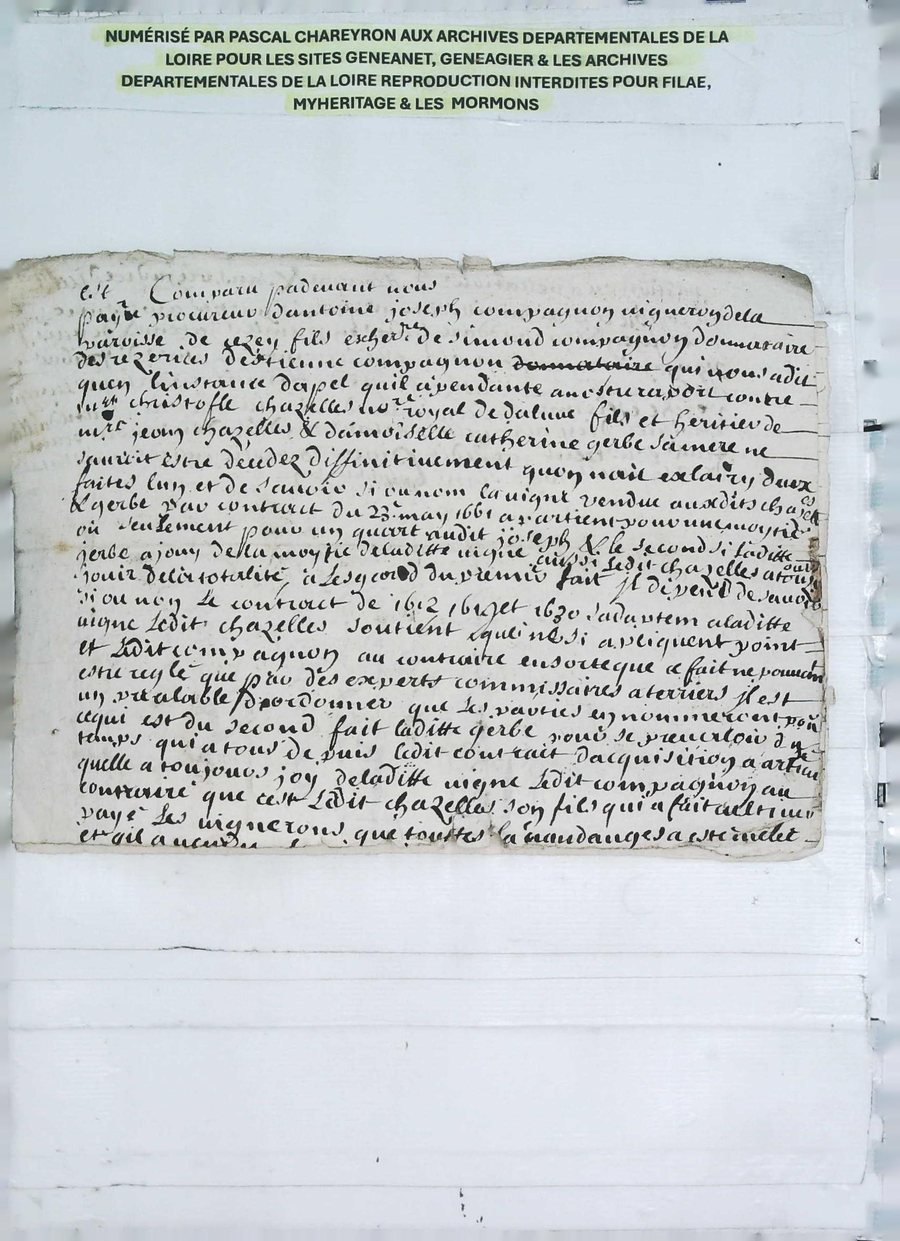 NUMÉRISÉ PAR PASCAL CHAREYRON AUX ARCHIVES DEPARTEMENTALES DE LA
LOIRE POUR LES SITES GENEANET, GENEAGIER & LES ARCHIVES
DEPARTEMENTALES DE LA LOIRE REPRODUCTION INTERDITES POUR FILAE,
MYHERITAGE & LES MORMONS
est Comparu padevant nous
procureur dantoine joseph compagnon vigneron dela
paroisse de cezey fils et her.re de simond compagnon donnataire
destienne compagnon donnataire qui nous a dit
quen linstance dapel quil a pendante a nostre raport contre
christofle chazelles no.re royal de fils et heritier de
m.re jean chazelles & damoiselle catherine gerbe sa mere ne
sauroit estre decidez diffinitivement quon nait esclaircy deux
faites lun est de savoir si ou nom la vigne vendue auxdits
& gerbe par contract du 23.e may 1661 apartient pour une moytié
ou seulement pour un quart audit joseph & le second si laditte
gerbe a jouy de la moytie de laditte vigne ou si ledit chazelles a
jouir dela totalité, a lesgard du premier fait Jl dipend de savoir
si ou non le contract de 1612 et 1630 sadaptem a laditte
vigne ledit chazelles soutient quil ne si apliquent point
et ledit compagnon au contraire en sorte que ce fait ne pouvan
estre reglé que par des experts commissaires a terriers jl est
un prealable d'ordonner que les parties en nommeront pour
cequi est du second fait laditte gerbe pour se prevaloir du
temps qui a tous depuis ledit contrait dacquisition a
quelle a toujours joy deladitte vigne ledit compagnon au
contraire que cest ledit chazelles son fils qui a fait
payé les vignerons que touttes la vandanges a esté
et